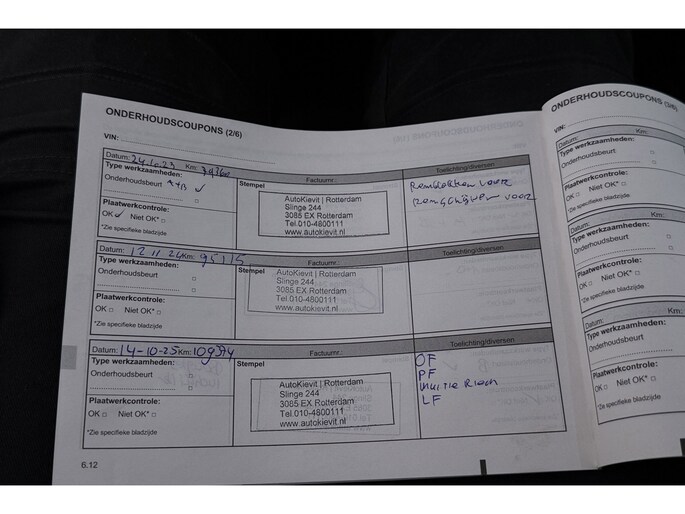 ONDERHOUDSCOUPONS (2/6)
VIN:
Datum: 24.10.23 Km: 79360 Factuurnr.: Toelichting/diversen
Type werkzaamheden:
Onderhoudsbeurt A+B ✓
Stempel
AutoKievit | Rotterdam
Slinge 244
3085 EX Rotterdam
Tel.010-4800111
www.autokievit.nl
Remblokken voor
remschijven voor
Plaatwerkcontrole:
OK ✓ Niet OK* □
*Zie specifieke bladzijde
Datum: 12 11 24 Km: 95115 Factuurnr.: Toelichting/diversen
Type werkzaamheden:
Onderhoudsbeurt □
Stempel
AutoKievit | Rotterdam
Slinge 244
3085 EX Rotterdam
Tel.010-4800111
www.autokievit.nl
Plaatwerkcontrole:
OK □ Niet OK* □
*Zie specifieke bladzijde
Datum: 14-10-25 Km: 109374 Factuurnr.: Toelichting/diversen
Type werkzaamheden:
Onderhoudsbeurt □
Stempel
AutoKievit | Rotterdam
Slinge 244
3085 EX Rotterdam
Tel.010-4800111
www.autokievit.nl
OF
PF
Multie Riem
LF
Plaatwerkcontrole:
OK □ Niet OK* □
*Zie specifieke bladzijde
6.12
ONDERHOUDSCOUPONS (3/6)
VIN:
Datum: Km:
Type werkzaamheden:
Onderhoudsbeurt □
Plaatwerkcontrole:
OK □ Niet OK* □
*Zie specifieke bladzijde
Datum: Km:
Type werkzaamheden:
Onderhoudsbeurt □
Plaatwerkcontrole:
OK □ Niet OK* □
*Zie specifieke bladzijde
Datum: Km:
Type werkzaamheden:
Onderhoudsbeurt □
Plaatwerkcontrole:
OK □ Niet OK* □
*Zie specifieke bladzijde